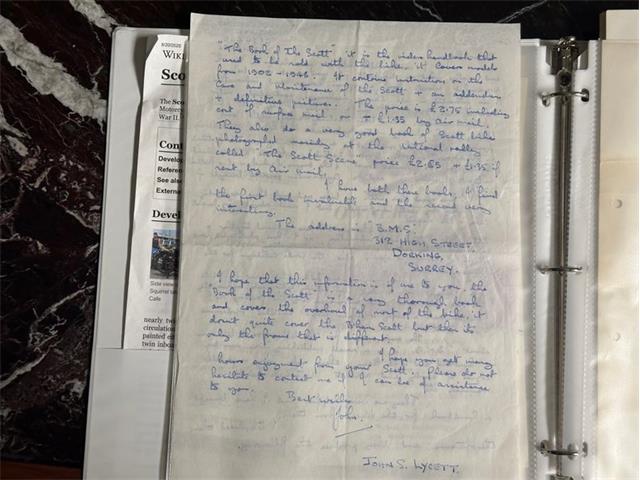 8/20/2025
WIKI
Sco
The Sco
Motorcy
War II.
Cont
Develo
Referen
See also
Externa
Devel
Side view
Squirrel
Cafe
nearly tw
circulation
painted en
twin inbo
"The Book of The Scott" it is the riders handbook that
used to be sold with the bike, it covers models
from 1902 - 1946. It contains instructions on the
Care and Maintenance of the Scott + an addendum
+ definitive pictures. The price is £2.75 including
cost of surface mail or + £1.35 by air mail.
They also do a very good book of Scott bike
photographed mainly at the national rallies
called "The Scott Scene" price £2.85 + £1.35 if
sent by Air mail.
I have both these books, I find
the first book invaluable and the second very
interesting.
The address is "B.M.S."
312 HIGH STREET,
DORKING,
SURREY.
I hope that this information is of use to you, the
"Book of the Scott" is a very thorough book
and covers the overhaul of most of the bike, it
doesn't quite cover the B'ham Scott but then its
only the frame that is different.
I hope you get many
hours enjoyment from your Scott. Please do not
hesitate to contact me if I can be of assistance
to you.
Best wishes
John.
JOHN S. LYCETT.